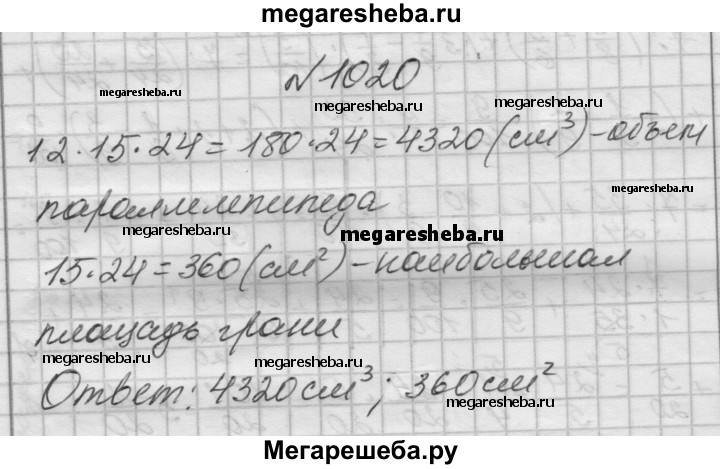 megaresheba.ru
№1020
megaresheba.ru
megaresheba.ru
megaresheba.ru
12·15·24=180·24=4320(см³)-объем
megaresheba.ru
параллелепипеда
megaresheba.ru
megaresheba.ru
15·24=360(см²)-наибольшая
площадь грани
megaresheba.ru
megaresheba.ru
Ответ: 4320см³; 360см²
megaresheba.ru
Мегарешеба.ру